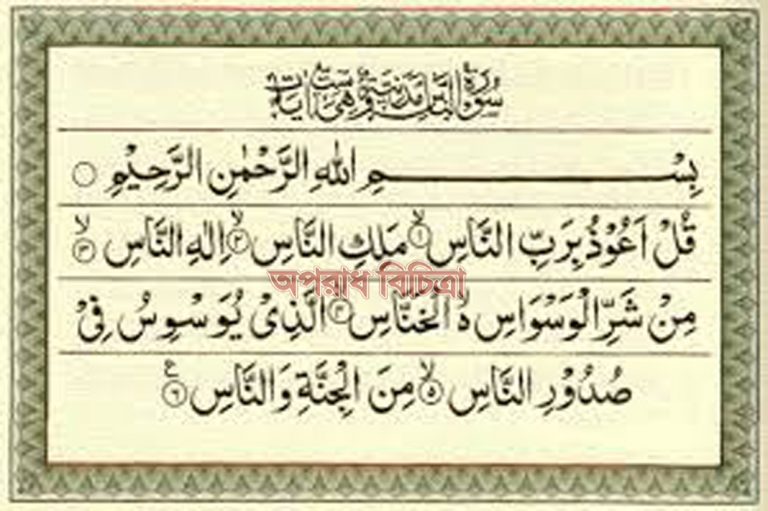 سُوْرَةُ النَّاسِ مَدَنِيَّةٌ وَّهِيَ سِتُّ اٰيَاتٍ
بِسْمِ اللهِ الرَّحْمٰنِ الرَّحِيْمِ ۝
قُلْ اَعُوْذُ بِرَبِّ النَّاسِ ۙ‏﴿۱﴾ مَلِكِ النَّاسِ ۙ‏﴿۲﴾ اِلٰهِ النَّاسِ ۙ‏﴿۳﴾
অপরাধ বিচিত্রা
مِنْ شَرِّ الْوَسْوَاسِ ۙ الْخَنَّاسِ ﴿۴﴾ الَّذِيْ يُوَسْوِسُ فِيْ
صُدُوْرِ النَّاسِ ۙ‏﴿۵﴾ مِنَ الْجِنَّةِ وَالنَّاسِ ﴿۶﴾ ع